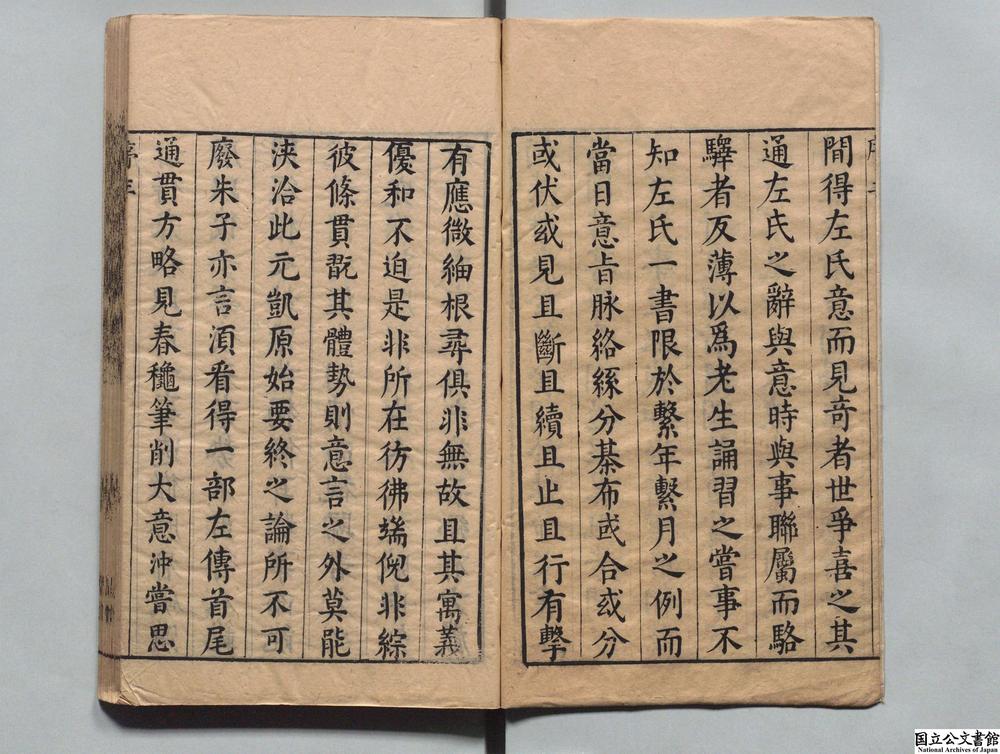 間得左氏意而見奇者世爭喜之其
通左氏之辭與意時與事聯屬而駱
驛者反薄以爲老生誦習之嘗事不
知左氏一書限於繫年繫月之例而
當日意旨脉絡絲分棊布或合或分
或伏或見且斷且續且止且行有擊
有應微紬根尋俱非無故且其寓義
優和不迫是非所在彷彿端倪非綜
彼條貫翫其體勢則意言之外莫能
浹洽此元凱原始要終之論所不可
廢朱子亦言湏看得一部左傳首尾
通貫方略見春龝筆削大意沖嘗思
國立公文書館
National Archives of Japan